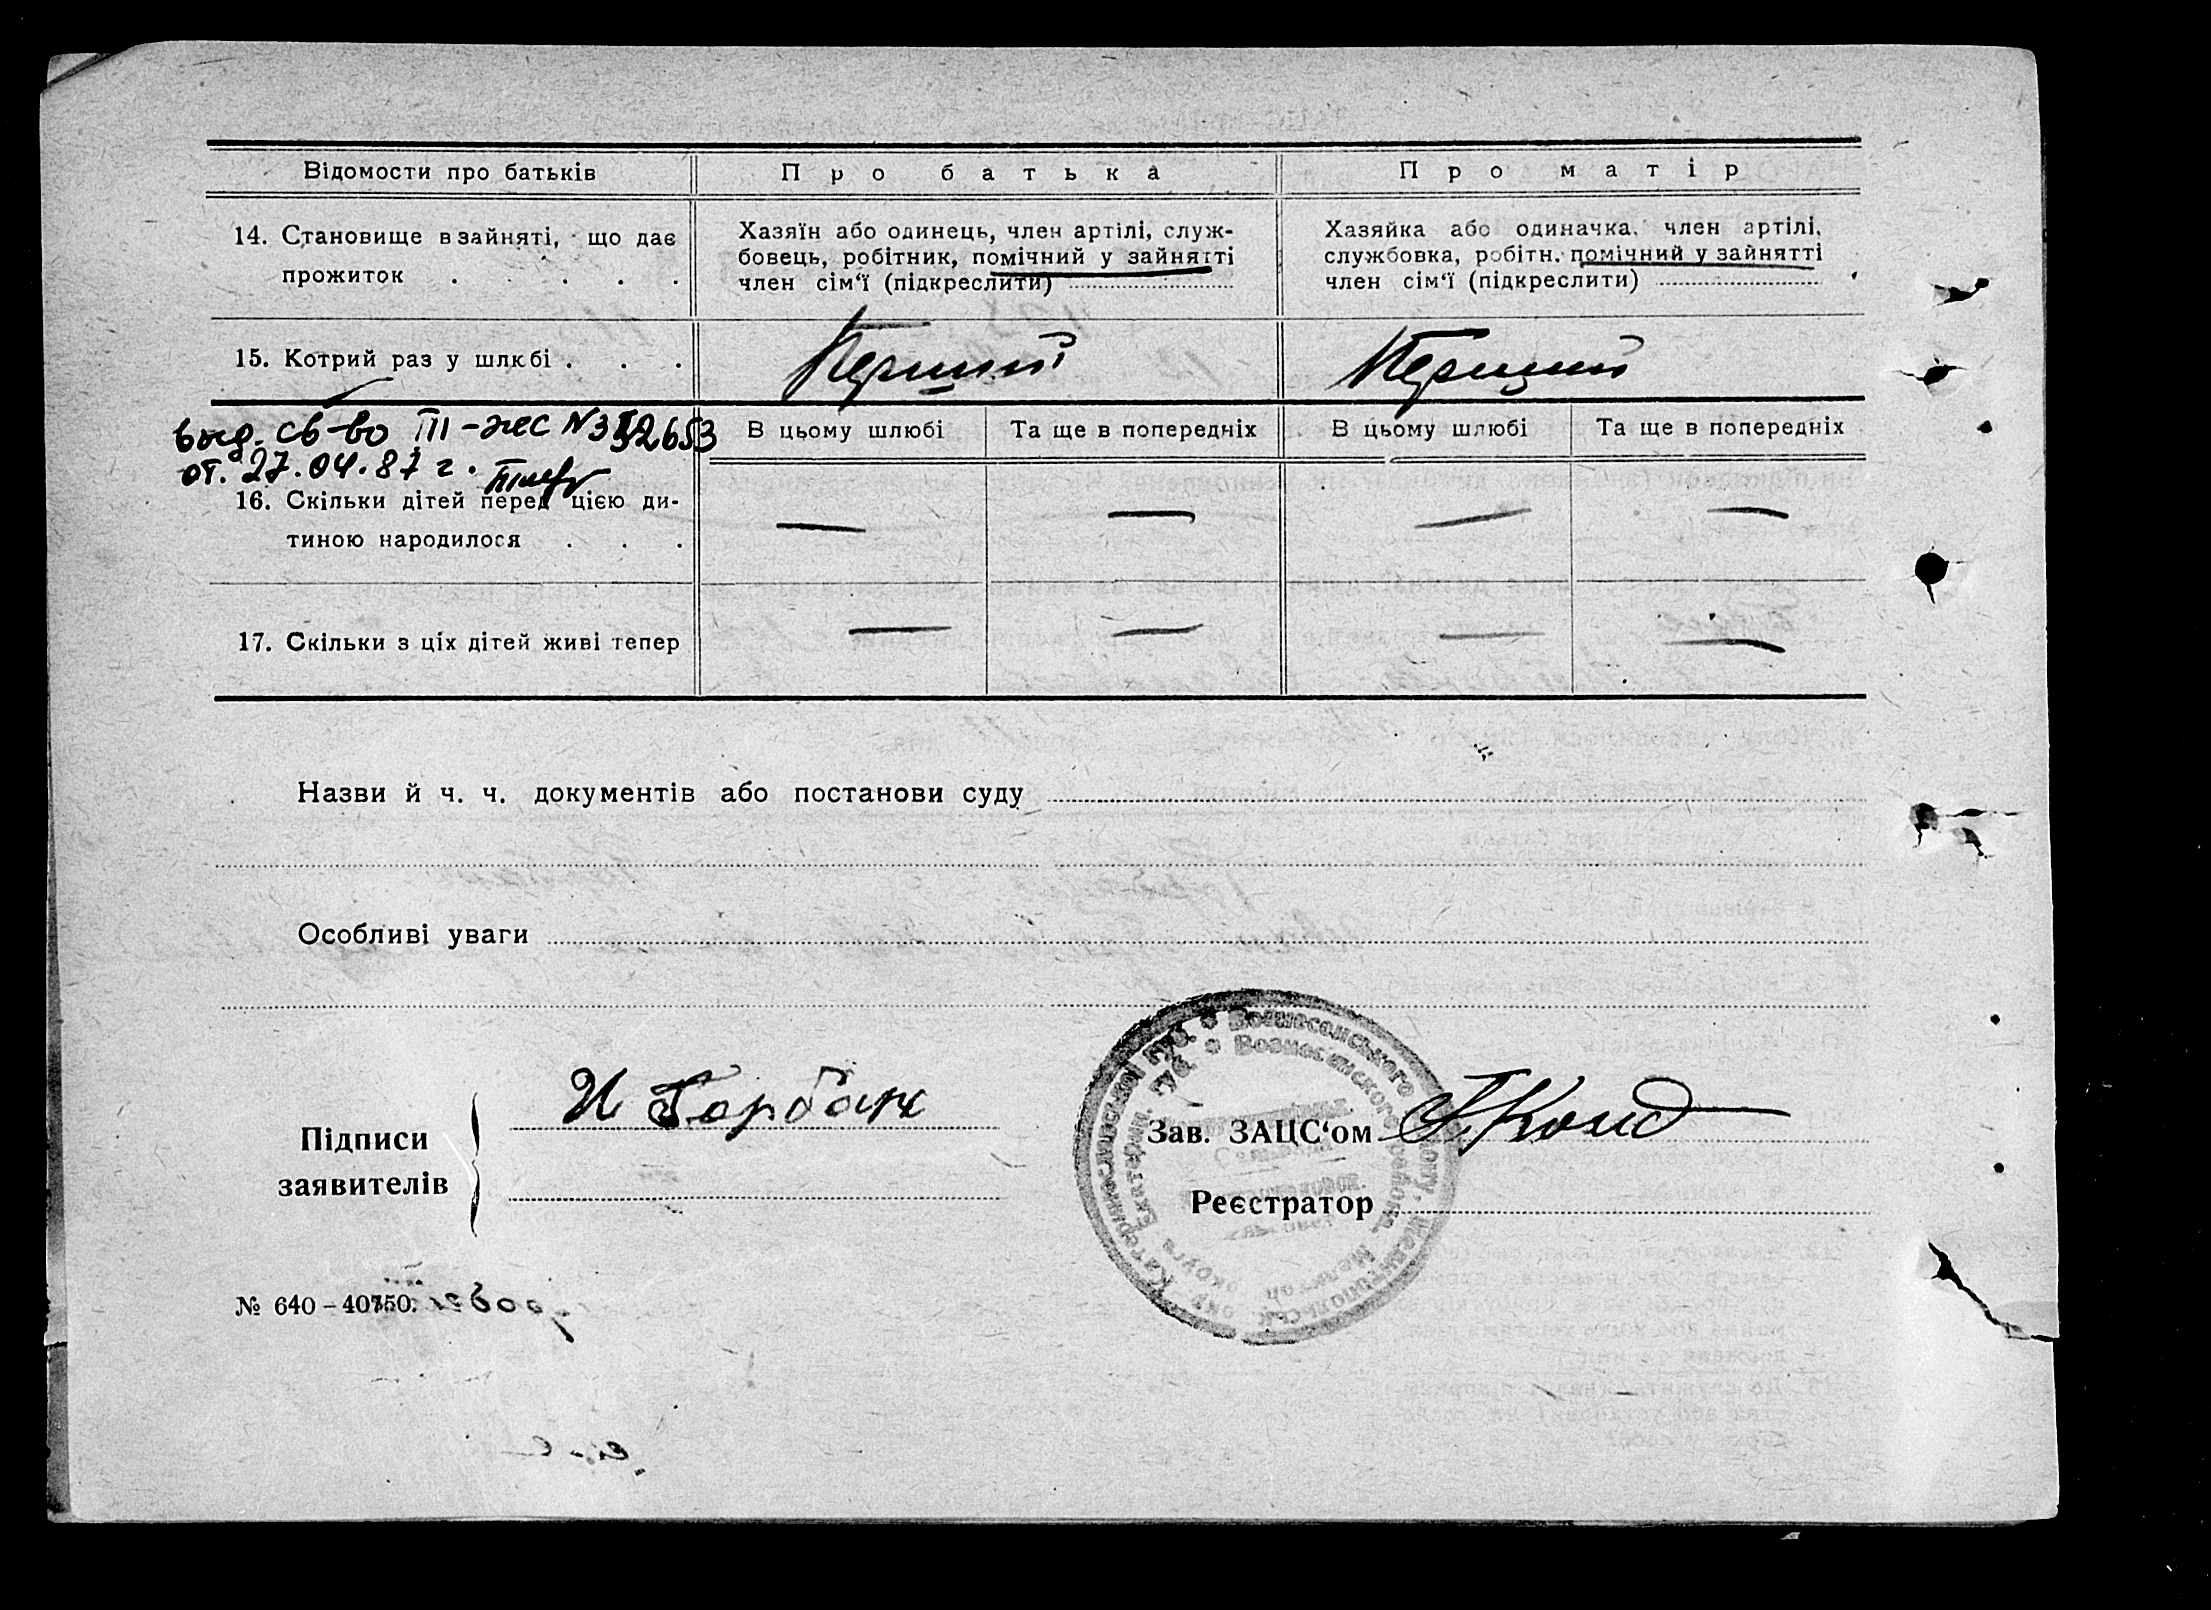 Відомости про батьків
Про батька
Про матір
14. Становище в зайняті, що дає
прожиток . . . .
Хазяїн або одинець, член артілі, служ-
бовець, робітник, помічний у зайнятті
член сім‘ї (підкреслити)
Хазяйка або одиначка, член артілі,
службовка, робітн. помічний у зайнятті
член сім‘ї (підкреслити)
15. Котрий раз у шлюбі . . .
Перший
Перший
выд. св-во III-жс N
от. 27.04.87 г.
В цьому шлюбі
Та ще в попередніх
В цьому шлюбі
Та ще в попередніх
16. Скільки дітей перед цією ди-
тиною народилося . . .
— — — —
17. Скільки з ціх дітей живі тепер
— — — —
Назви й ч. ч. документів або постанови суду
Особливі уваги
Підписи
заявителів
И Горбань
Зав. ЗАЦС‘ом
Реєстратор
Катеринославської губ. Вознесенського
Вознесенского района
№ 640 – 40750.